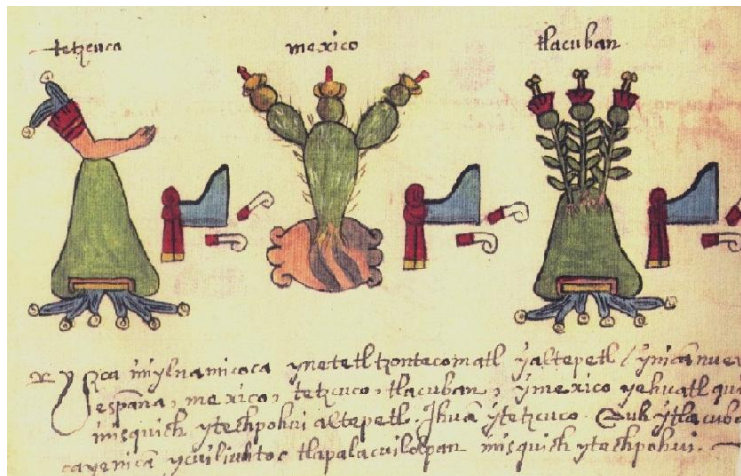 tetzcuca
mexico
tlacuban
yzca ynilnamicoca ynetetl tzontecomatl yaltepetl / ynican nue
españa, mexico, tetzcuco, tlacuban, ymexico yehuatl
misquich ytechpohui altepetl. Jhuā ytetzcuco. Auh ytlacuba
ycuiliuhtoc tlapalacuilolpan misquich ytechpohui.